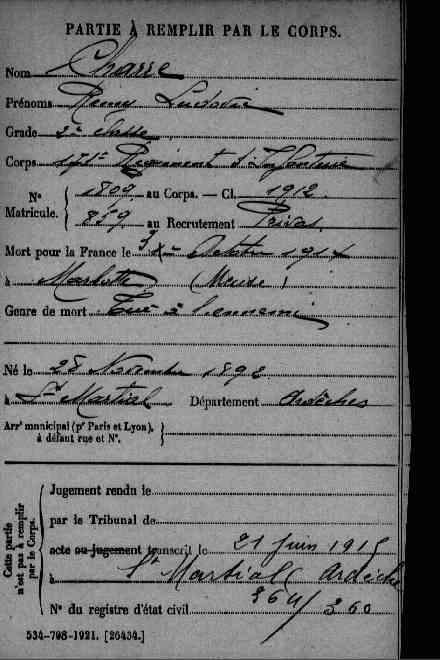 PARTIE À REMPLIR PAR LE CORPS.
Nom Charre
Prénoms Remy Ludovic
Grade 2e classe
Corps 171e Régiment d'Infanterie
Nos Matricule. 1809 au Corps. — Cl. 1912
859 au Recrutement Privas
Mort pour la France le Octobre 1914
à (Meuse)
Genre de mort Tué à l'ennemi
Né le 28 Novembre 1892
à St Martial Département Ardèches
Arrt municipal (pr Paris et Lyon),
à défaut rue et N°.
Cette partie n'est pas à remplir par le Corps.
Jugement rendu le
par le Tribunal de
acte ou jugement transcrit le 21 Juin 1915
à St Martial (Ardèche
N° du registre d'état civil 364/360
534-708-1921. [26434.]